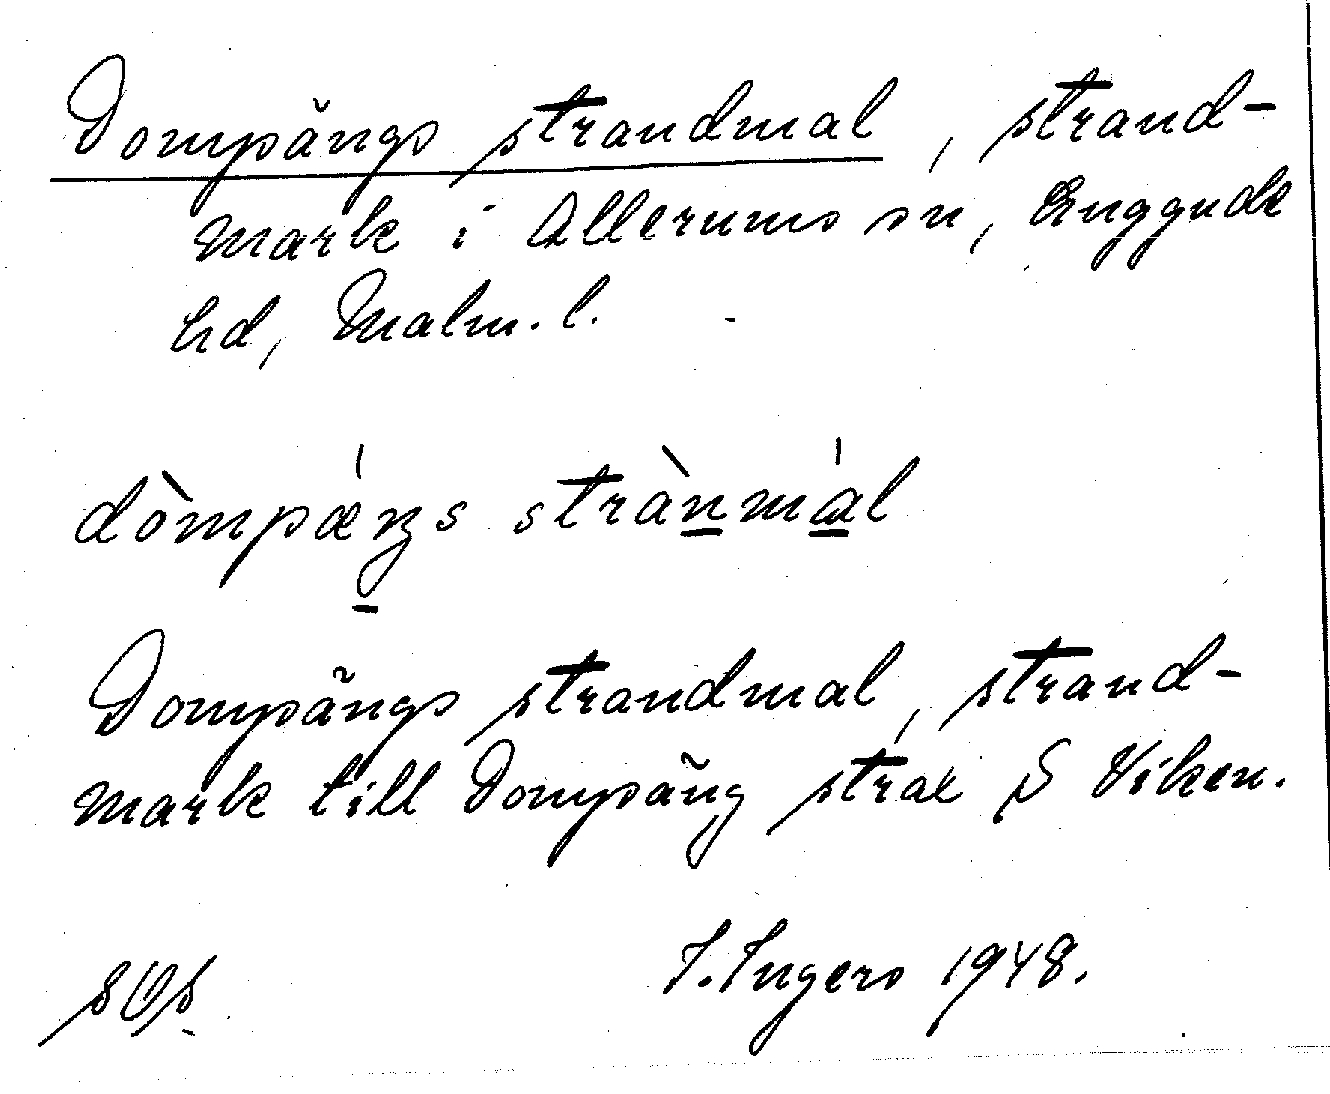 Dompängs strandmal, strand-
mark i Allerums sn, Luggude
hd, Malm. l.
dòmpǽŋs strànmál
Dompängs strandmal, strand-
mark till Dompäng strax S Viken.
I. Ingers 1948.